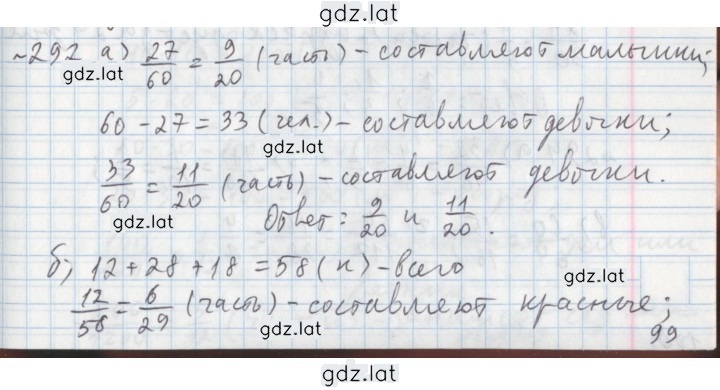 gdz.lat
~292 а) 27/60 = 9/20 (часть) - составляют мальчики;
gdz.lat gdz.lat
60 - 27 = 33 (чел.) - составляют девочки;
gdz.lat
33/60 = 11/20 (часть) - составляют девочки.
gdz.lat
Ответ: 9/20 и 11/20.
б) 12 + 28 + 18 = 58 (к) - всего
gdz.lat
12/58 = 6/29 (часть) - составляют красные;
gdz.lat
99
gdz.lat